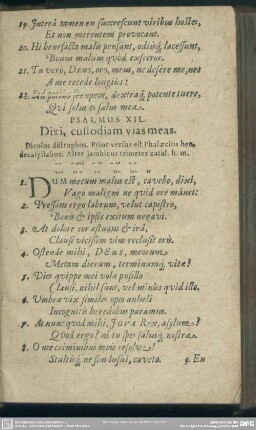 19. Interà tamen en succrescunt viribus hostes,
Et non merentem provocant.
20. Hi benefacta malis pensant, odiisq́; lacessunt,
Bonus malum quòd exsecror.
21. Tu vero, DEus, oro, meus, ne desere me, nec
A me recede longiùs:
22. Sed potiùs fer opem, dextraq́; potente tuere,
Qui solus es salus mea.
PSALMUS XII.
Dixi, custodiam vias meas.
Dicolos distrophos. Prior versus est Phalæcius hen-
decasyllabus. Alter jambicus trimeter catal. h. m.
1. DUM mecum malus est, cavebo, dixi,
Vaga maligni ne quid ore mânet:
2. Pressim ergo labrum, velut capistro,
Bonis & ipsis exitum negavi.
3. At dolore cor æstuans & irâ,
Clausi vicisim vim reclusit oris.
4. Ostende mihi, DEus, meorum
Metam dierum, terminumq́; vitæ?
5. Dies quippe mei vola pusillo
Clausi, nihil sunt, vel minùs quid illo.
6. Umbræ vix similes opes anheli
Incognitis heredibus paramus.
7. At nunc quod mihi, JOVA Rex, asylum?
Quod ergo? ni tu spes salusq́; nostra.
8. O me criminibus meis resolve!
Stultisq́; ne sim lusui, caveto.
9. En